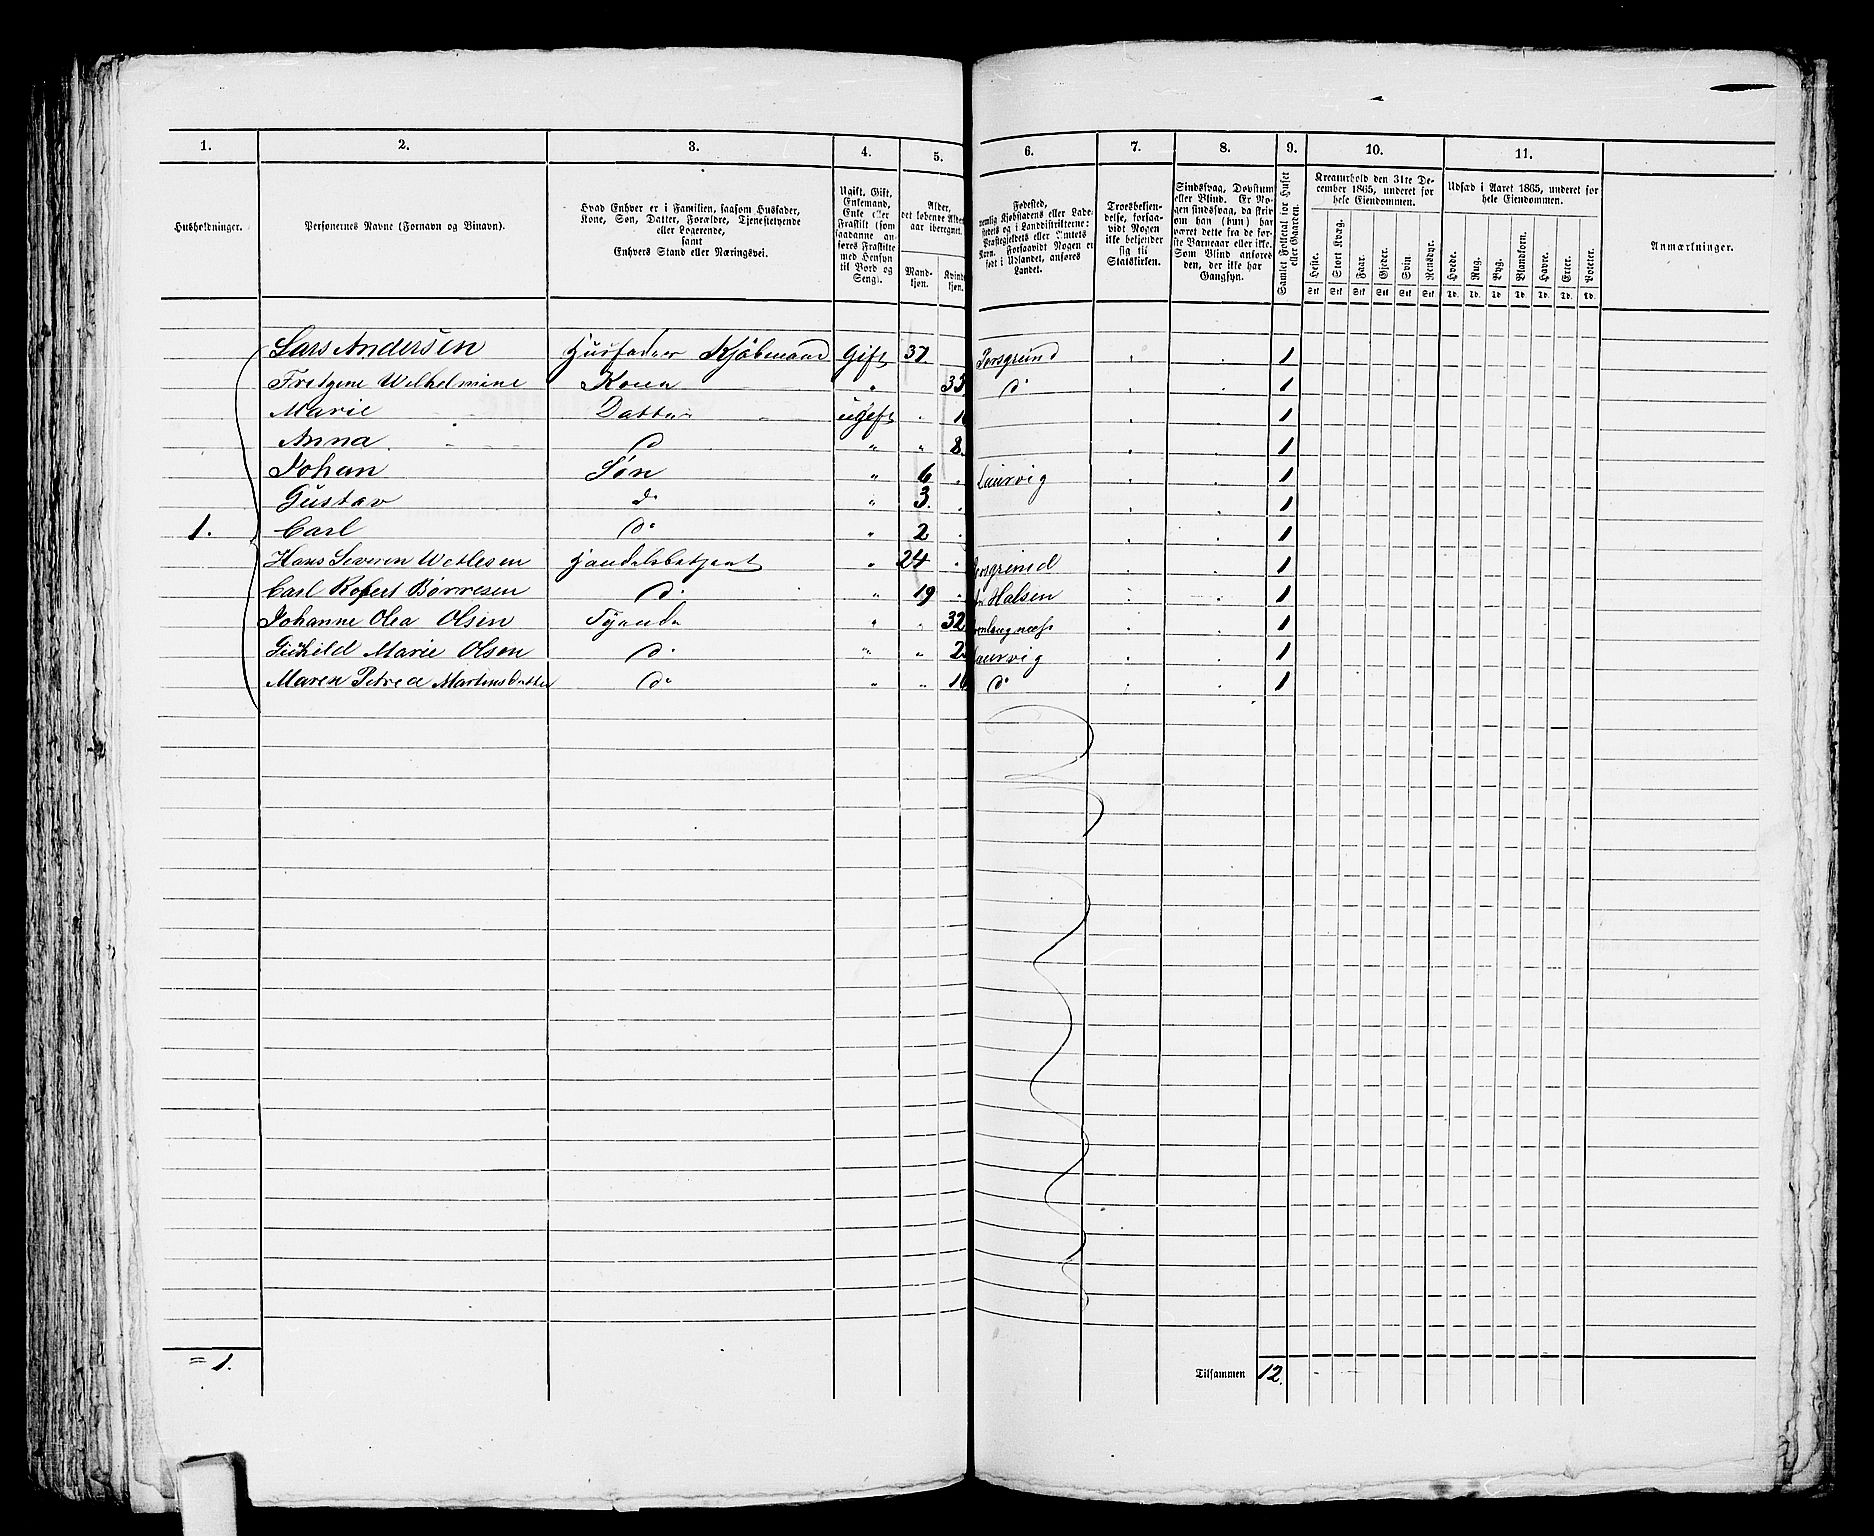 1. 2. 3. 4. 5. 6. 7. 8. 9. 10. 11.
Husholdninger.
Personernes Navne (Fornavn og Tilnavn).
Hvad Enhver er i Familien, saasom Husfader,
Kone, Søn, Datter, Forældre, Tjenestetyende
eller Logerende,
samt
Enhvers Stand eller Næringsvei.
Ugift, Gift,
Enkemand,
Enke eller
Fraskilt (som
saadanne an-
føres Fraskilte
med Hensyn
til Bord og
Seng).
Alder,
det løbende Alders-
aar iberegnet.
Mand-
kjøn.
Kvinde-
kjøn.
Fødested,
nemlig Kjøbstadens eller Lade-
stedets og i Landdistrikterne:
Præstegjeldets eller Amtets
Navn, forsaavidt Nogen er
født i Udlandet, anføres
Landet.
Troesbekjen-
delse, forsaa-
vidt Nogen
ikke bekjender
sig til
Statskirken.
Sindssvag, Døvstum
eller Blind. Er No-
gen sindssvag, da skriv
om han (hun) har
været dette fra de før-
ste Barneaar eller ikke.
Som Blind anføres
den, der ikke har
Gangsyn.
Samlet Folketal for Huset
eller Gaarden.
Kreaturhold den 31te De-
cember 1865, underet for
hele Eiendommen.
Heste. Stort Kvæg. Faar. Gjeder. Svin. Rensdyr.
Stk Stk Stk Stk Stk Stk
Udsæd i Aaret 1865, underet for
hele Eiendommen.
Hvede. Rug. Byg. Blandkorn. Havre. Erter. Poteter.
Td. Td. Td. Td. Td. Td. Td.
Anmærkninger.
Lars Andersen Husfader Kjøbmand Gift 37. Porsgrund 1
Wilhelmine Kone " 33 do 1
Marie Datter ugift " 1
Anna do " " 8. 1
Johan Søn " 6 Laurvig 1
Gustav do " 3. 1
1. Carl do " 2 1
Hans Severin Wetlesen Handelsbetjent " 24 Porsgrund 1
Carl Robert Børresen do " 19 Halsen 1
Johanne Olea Olsen Tjende " " 32 1
Marie Olsen do " " 2 Laurvig 1
Maren Petrea Martinsdatter do " " 16 do 1
= 1.
Tilsammen 12.